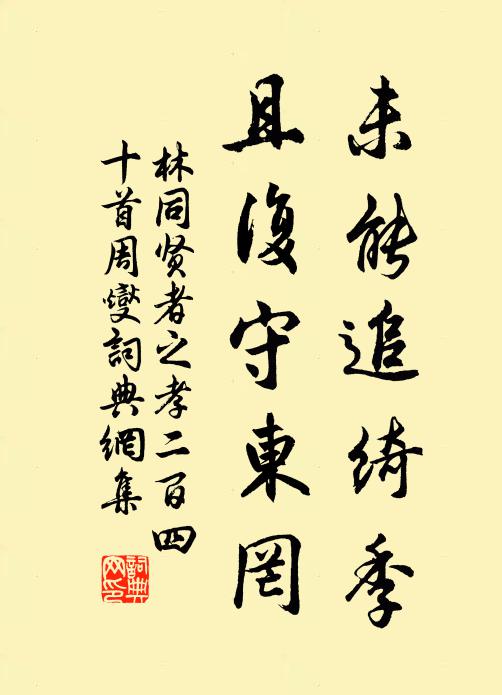 未能追绮季
且復守東罔
林同贤者之孝二百四
十首周燮詞典網集
詞典
网印